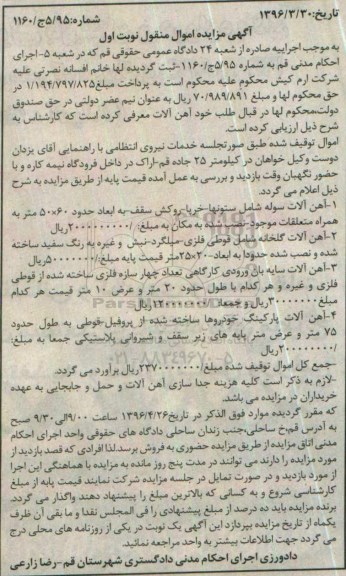 تاریخ:۱۳۹۶/۳/۳۰ شماره:۵/۹۵ج/۱۱۶۰
آگهی مزایده اموال منقول نوبت اول
به موجب اجراییه صادره از شعبه ۲۴ دادگاه عمومی حقوقی قم که در شعبه ۵-اجرای
احکام مدنی قم به شماره ۵/۹۵ج/۱۱۶۰-ثبت گردیده لها خانم افسانه نصرتی علیه
شرکت ارم کیش محکوم علیه محکوم است به پرداخت مبلغ۱/۱۹۴/۷۹۷/۸۲۵ در
حق محکوم لها و مبلغ ۷۰/۹۸۹/۸۹۱ ریال به عنوان نیم عشر دولتی در حق صندوق
دولت،محکوم لها در قبال طلب خود آهن آلات معرفی کرده است که کارشناس به
شرح ذیل ارزیابی کرده است.
اموال توقیف شده طبق صورتجلسه خدمات نیروی انتظامی با راهنمایی آقای یزدان
دوست وکیل خواهان در کیلومتر ۲۵ جاده قم-اراک در داخل فرودگاه نیمه کاره و با
حضور نگهبان وقت بازدید و بررسی به عمل آمده قیمت پایه از طریق مزایده به شرح
ذیل اعلام می گردد.
۱-آهن آلات سوله شامل ستونها-خرپا-روکش سقف-به ابعاد حدود ۶۰×۵۰ متر به
همراه متعلقات موجود-نصب شده به مکان به مبلغ/ ۲۰۰۰۰۰۰۰۰۰ریال
۲-آهن آلات گلخانه شامل قوطی فلزی-میلگرد-نبش و غیره به رنگ سفید ساخته
شده و نصب شده حدودا به ابعاد-۲۰×۲۵متر قیمت پایه مبلغ/۵۰۰۰۰۰۰۰ریال
۳-آهن آلات سایه بان ورودی کارگاهی تعداد چهار سازه فلزی ساخته شده از قوطی
فلزی و غیره و هر کدام با طول حدود ۲۰ متر و عرض ۱۰ متر قیمت هر کدام
مبلغ/۳۰۰۰۰۰۰۰ریال و جمعا/ ۱۲۰۰۰۰۰۰۰ریال
۴-آهن آلات پارکینگ خودروها ساخته شده از پروفیل-قوطی به طول حدود
۷۵ متر و عرض متر پایه های زیر سقف و شیروانی پلاستیکی جمعا به مبلغ
/۲۰۰۰۰۰۰۰۰ریال
-جمع کل اموال توقیف شده مبلغ/۲۳۷۰۰۰۰۰۰۰ریال برآورد می گردد.
-لازم به ذکر است کلیه هزینه جدا سازی آهن آلات و حمل و جابجایی به عهده
خریداران در مزایده می باشد.
که مقرر گردیده موارد فوق الذکر در تاریخ۱۳۹۶/۴/۲۶ ساعت ۹/۰۰الی۹/۳۰ صبح
به آدرس قم،خ ساحلی،جنب زندان ساحلی دادگاه های حقوقی واحد اجرای احکام
مدنی اتاق مزایده از طریق مزایده حضوری به فروش برسد.لذا افرادی که قصد بازدید از
مورد مزایده را دارند می توانند در مدت پنج روز مانده به مزایده با هماهنگی این اجرا
از مورد بازدید و در صورت تمایل در جلسه مزایده شرکت نمایند قیمت پایه از مبلغ
کارشناسی شروع و به کسانی که بالاترین مبلغ را پیشنهاد دهند واگذار می گردد.
برنده مزایده باید ده درصد از مبلغ پیشنهادی را فی المجلس نقدا و ما بقی آن ظرف
یکماه از تاریخ مزایده بپردازد این آگهی یک نوبت در یکی از روزنامه های محلی درج
می گردد جهت اطلاعات بیشتر به واحد مراجعه نمائید.
دادورزی اجرای احکام مدنی دادگستری شهرستان قم-رضا زارعی
۰۲۱-۸۸۳۴۹۶۷۰-۵